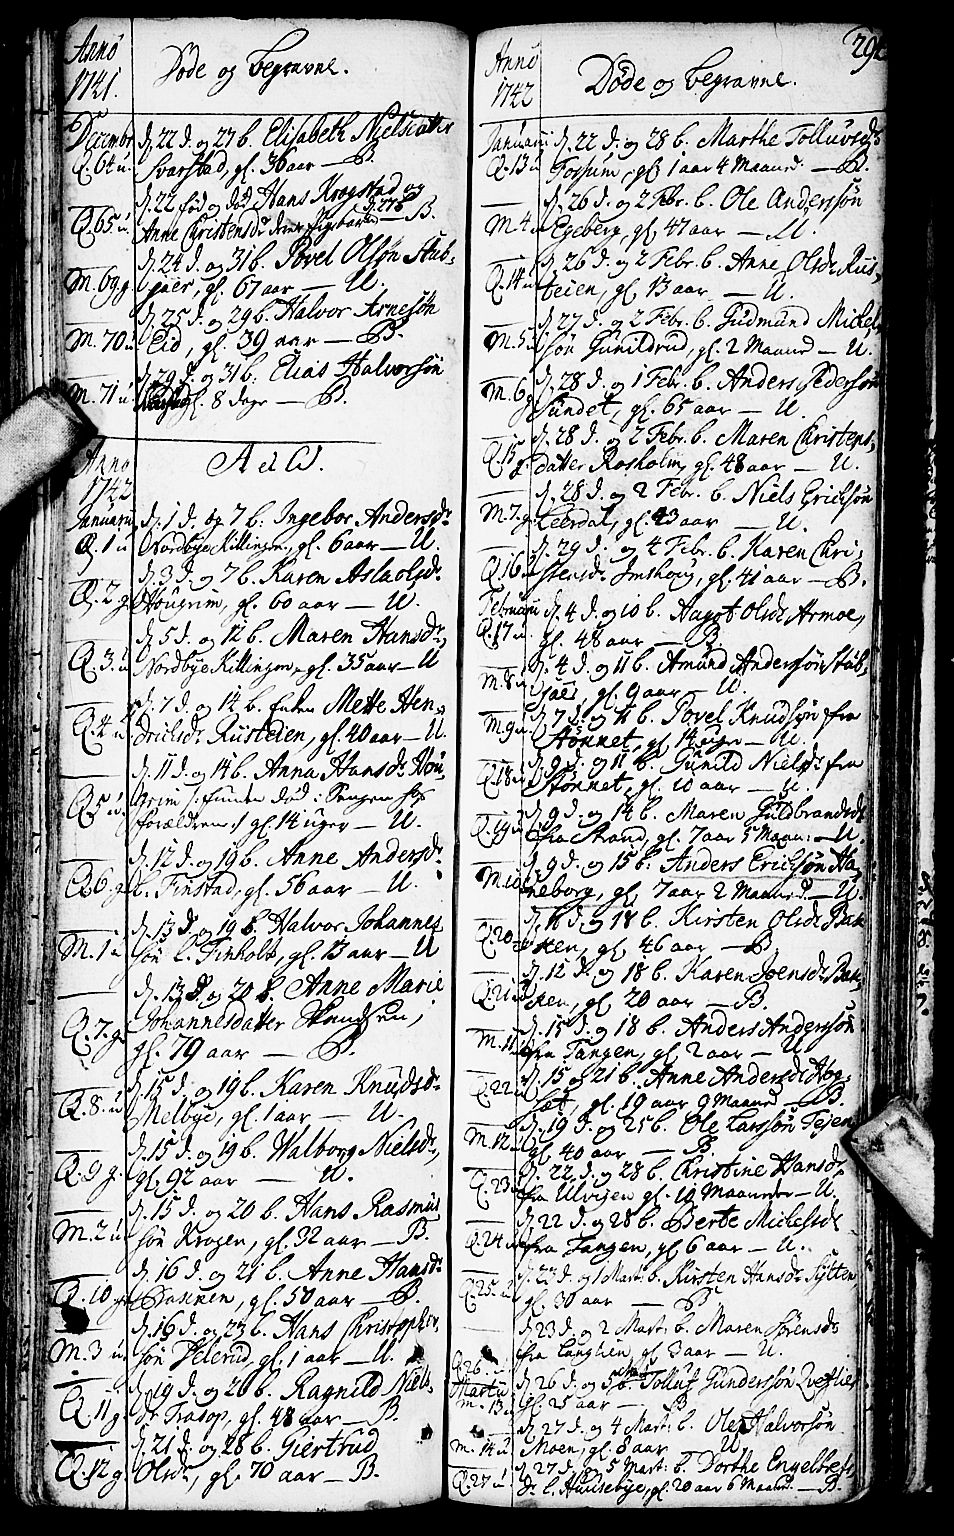 Anno
1741.
Döde og begravne.
Decembr d. 22 d. og 27 b. Elisabeth Nielsdatter
Q. 64 u. Svarstad, gl. 36 aar — B.
d. 22 fød og død Hans Krogstad og
Q. 65 u. Anne Christensdr d. 27 b. — B.
d. 24 d. og 31 b. Povel Olsøn Stub-
M. 69 g jaer, gl. 67 aar — U.
d. 25 d. og 29 b. Halvor Arnesøn
M. 70 u Eid, gl. 39 aar — B.
d. 29 d. og 31 b. Elias Halvorsøn
M. 71 u gl. 8 dage — B.
Anno
1742
Januarii d. 1 d. og 7 b. Ingebor Andersdr
Q. 1 u Nordbye Killingen, gl. 6 aar — U.
d. 3 d. og 7 b. Karen Aslaolsdr
Q. 2 g Hougrim, gl. 60 aar — U.
d. 5 d. og 12 b. Maren Hansdr,
Q. 3. u Nordbye Killingen, gl. 35 aar — U
d. 7 d. og 14 b. Enken Mette Hen-
Q. 4 u drichsdr Rusteien, gl. 40 aar — U.
d. 11 d. og 14 b. Anna Hansdr Hou-
Q. 5 u. grim /: funden død i Sengen hos
forældren :/ gl. 14 uger — U.
d. 12 d. og 19 b. Anne Andersdr
Q. 6. g l. Finstad, gl. 56 aar — U.
d. 13 d. og 19 b. Halvor Johannes
M. 1 u søn l. Finholt, gl. 13 aar — U
d. 13 d. og 20 b. Anne Marie
Q. 7. g Johannesdatter
gl. 79 aar — B.
d. 15 d. og 19 b. Karen Knudsdr
Q. 8. u Melbye, gl. 1 aar — U.
d. 15 d. og 19 b. Walborg Nielsdr,
Q. 9 g. gl. 92 aar — U.
d. 15 d. og 20 b. Hans Rasmus
M. 2 u søn Krogen, gl. 32 aar — B.
d. 16 d. og 21 b. Anne Hansdr
Q. 10 g Dannen, gl. 50 aar — B.
d. 16 d. og 23 b. Hans Christopher-
M. 3 u. søn Delerud, gl. 1 aar — U.
d. 19 d. og 26 b. Ragnild Niels-
Q. 11 g dr Trasop, gl. 48 aar — B.
d. 21 d. og 28 b. Giertrud
Q. 12 g Olsdr, gl. 70 aar — B.
Anno
1742
Döde og begravne.
Januarii d. 22 d. og 28 b. Marthe Tolluvsdr
Q. 13 u Fossum, gl. 1 aar 4 Maaned — B.
d. 26 d. og 2 Febr. b. Ole Anderssøn
M. 4 u Egeberg, gl. 47 aar — U.
d. 26 d. og 2 Febr. b. Anne Olsdr Rus-
Q. 14 u teien, gl. 13 aar — U.
d. 27 d. og 2 Febr. b. Gudmund Mickel-
M. 5 u søn Gunildrud, gl. 2 Maaned — U.
d. 28 d. og 1 Febr. b. Anders Pedersøn
M. 6 g Sundet, gl. 65 aar — U.
d. 28 d. og 2 Febr. b. Maren Christens-
Q. 15 g. datter Rosholm, gl. 48 aar — U.
d. 28 d. og 2 Febr. b. Niels Erichsøn
M. 7. g Leerdal, gl. 43 aar — U.
d. 29 d. og 4 Febr. b. Karen Chri-
Q. 16 u stensdr Imshoug, gl. 41 aar — B.
Februarii d. 4 d. og 10 b. Aagot Olsdr Armoe,
Q. 17 u. gl. 48 aar — B.
d. 4 d. og 11 b. Amund Andersøn Stub-
M. 8 u jaer, gl. 9 aar — U.
d. 7 d. og 11 b. Povel Knudsøn fra
M. 9 u Hønnet, gl. 14 uger — U.
d. 9 d. og 11 b. Gunild Nielsdr fra
Q. 18 u Hønnet, gl. 10 aar — U.
d. 9 d. og 14 b. Maren Guldbrandsdr
Q. 19 u fra Strand, gl. 7 aar 5 Maan: — U
d. 9 d. og 15 b. Anders Erichsøn Ha-
M. 10 u neborg, gl. 7 aar 2 Maaned — U.
d. 11 d. og 18 b. Kirsten Olsdr Bak
Q. 20 ken, gl. 46 aar — B.
d. 12 d. og 18 b. Karen Joensdr Bak-
Q. 21 u ken, gl. 20 aar — B.
d. 15 d. og 18 b. Anders Anderssøn
M. 11 u fra Tangen, gl. 2 aar — U.
d. 15 og 21 b. Anne Andersdr Hog-
Q. 22 u set, gl. 19 aar 9 Maaned — B.
d. 19 d. og 25 b. Ole Larssøn Tejen
M. 12 u gl. 40 aar — B.
d. 22 d. og 28 b. Christine Hansdr
Q. 23 u fra Ulvisen gl. 10 Maaneder — U.
d. 22 d. og 28 b. Berte Mickelsdr
Q. 24 u fra Tangen, gl. 6 aar — U.
d. 23 d. og 1 Mart. b. Kirsten Hansdr Hytten
Q. 25 u gl. 30 aar — B
d. 23 d. og 2 Mart. b. Maren Sørensdr
Q. 26 u fra Langlien, gl. 3 aar — U.
Martii d. 26 d. og 5 b. Tolluf Gunderssøn
M. 13 u gl. 25 aar — B
d. 27 d. og 4 Mart. b. Ole Halvorsøn
M. 14 u Moen, gl. 8 aar — U.
d. 27 d. og 5 Mart. b. Dorthe Engelbrets
Q. 27 u. dr l. Huusebye, gl. 20 aar 6 Maaned — B.